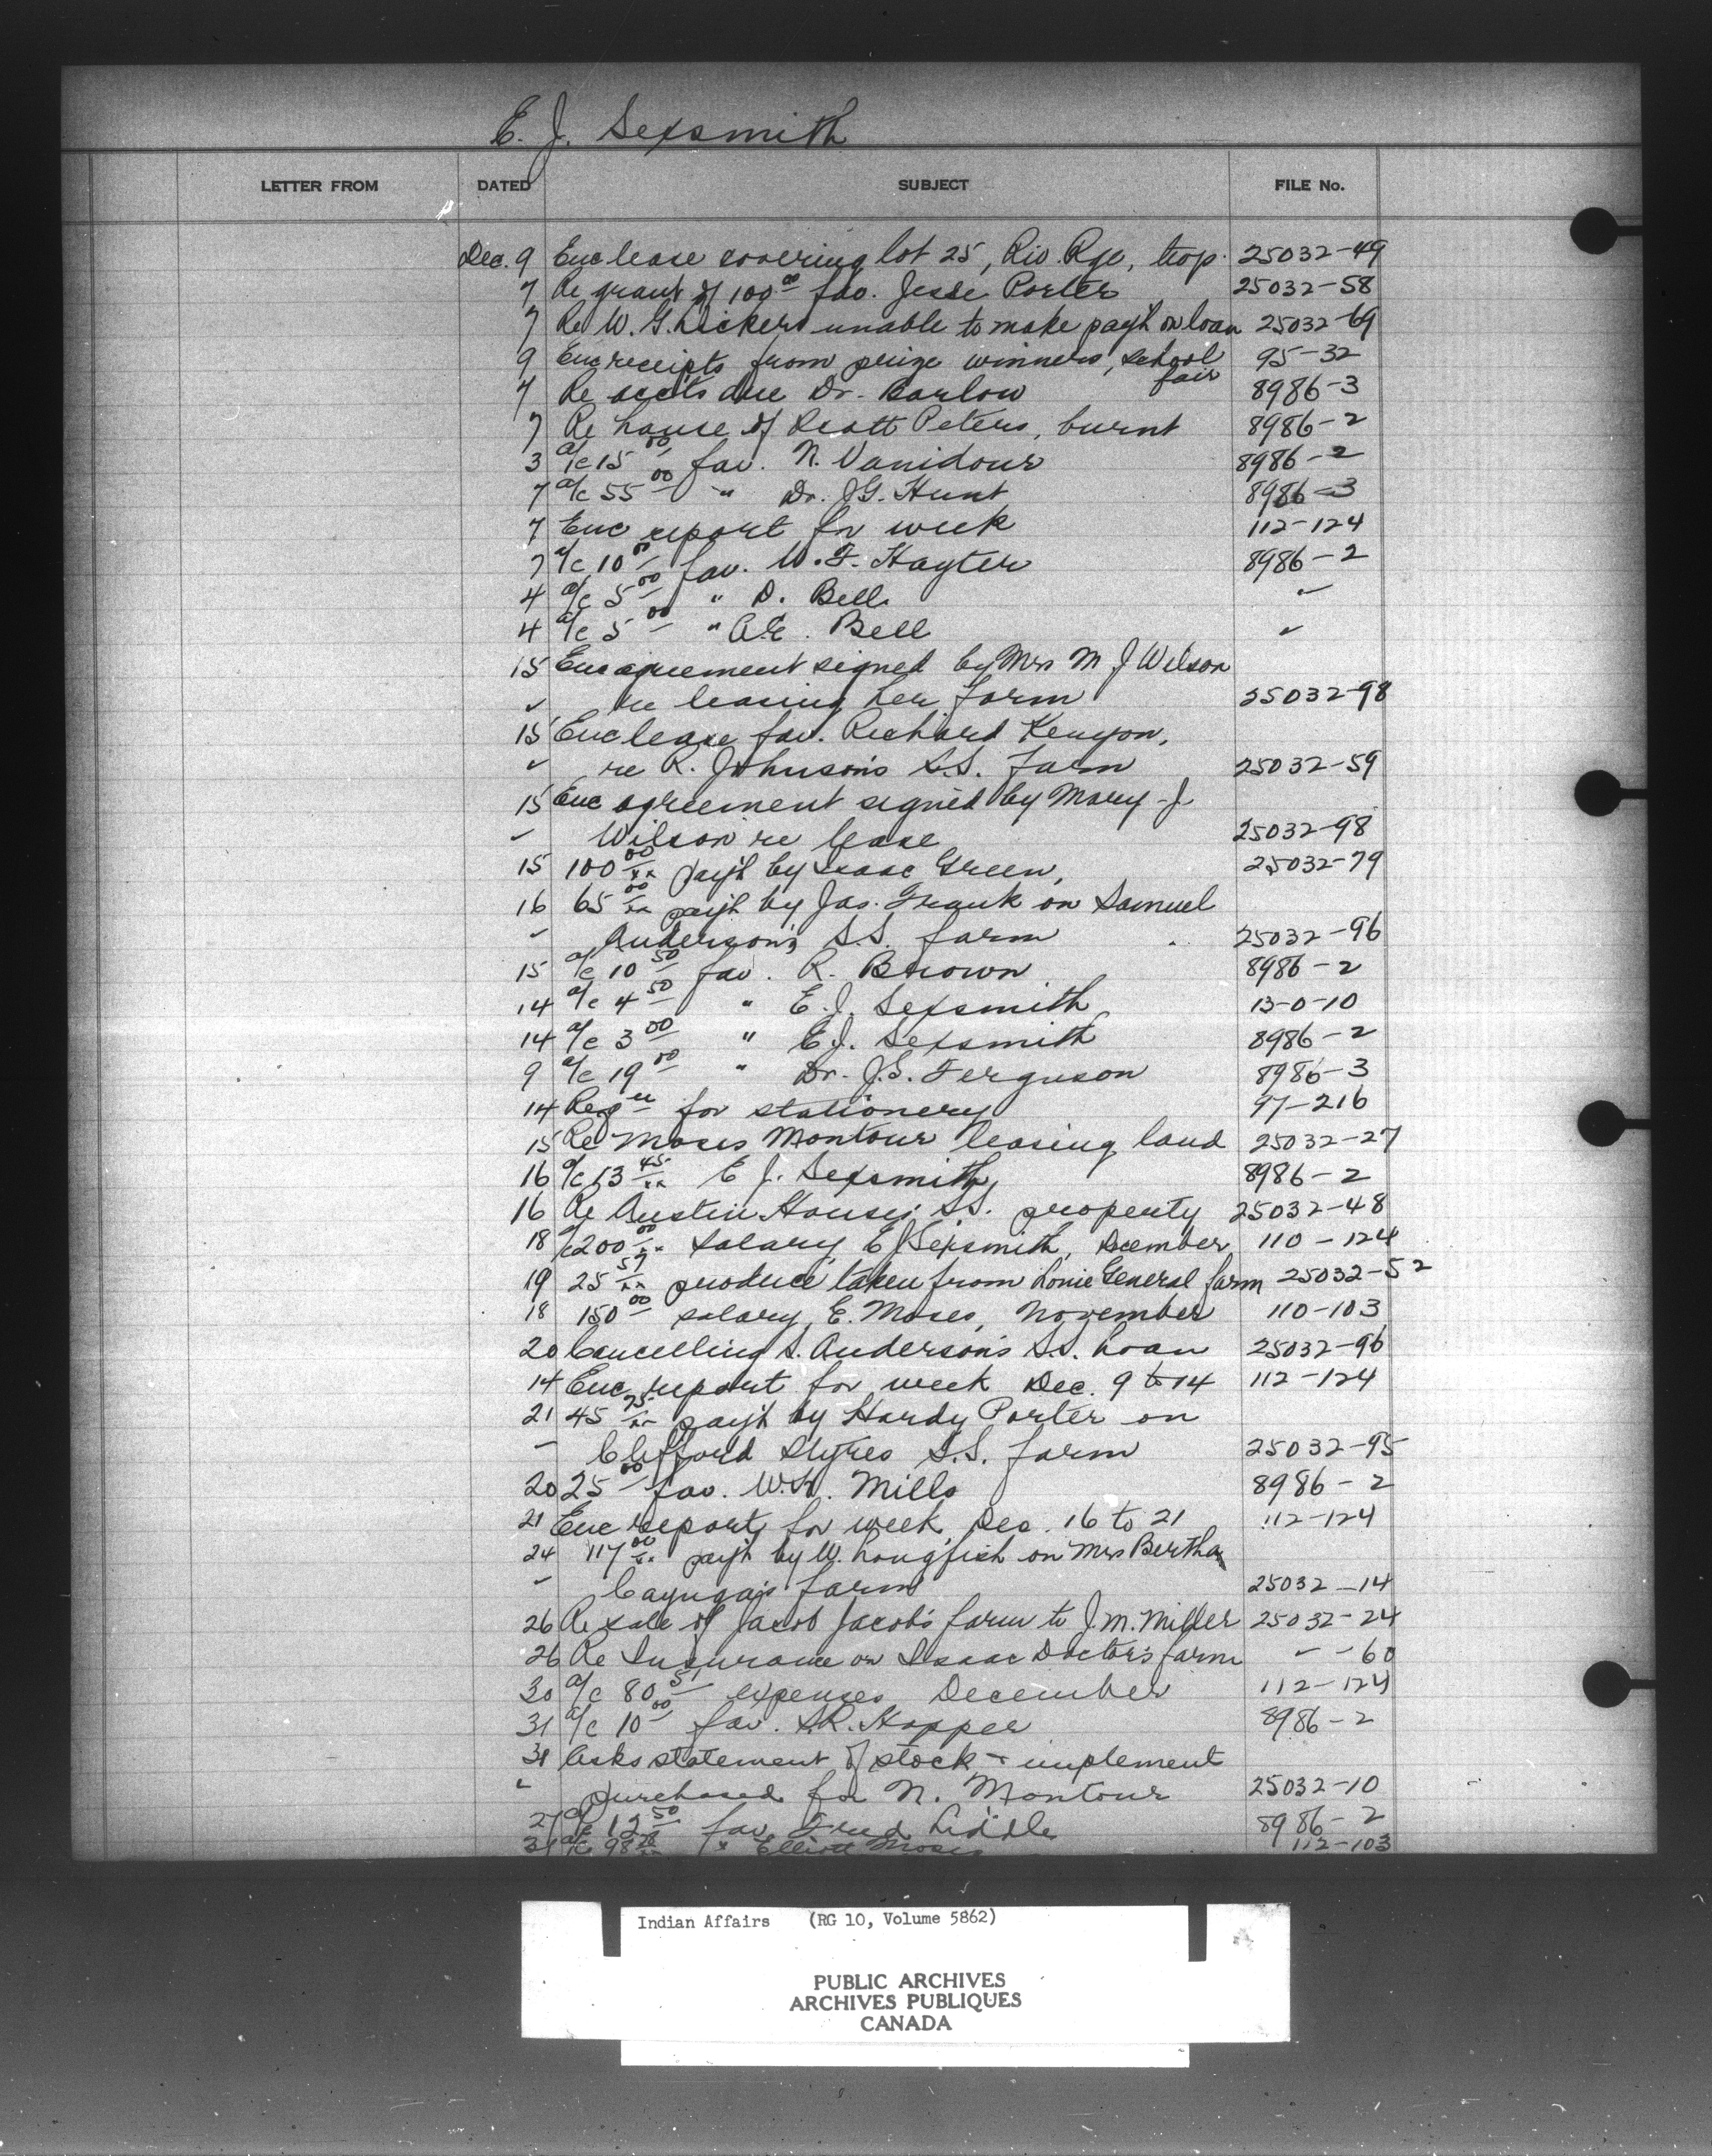 E. J. Sexsmith
LETTER FROM DATED SUBJECT FILE No.
Dec. 9 Enc lease covering lot 25, Riv. Rge, 25032-49
7 Re grant of 100 00 fav. Jesse Porter 25032-58
7 Re W. G. Lickers unable to make pay't on loan 25032-69
9 Enc receipts from prize winners, school fair 95-32
7 Re accts due Dr. Barlow 8986-3
7 Re house of Scott Peters, burnt 8986-2
3 a/c 15 00 fav. N. Vanidour 8986-2
7 a/c 55 00 " Dr. J.G. Hunt 8986-3
7 Enc report for week 112-124
7 a/c 10 00 fav. W. F. Hayter 8986-2
4 a/c 5 00 " D. Bell "
4 a/c 5 00 " A.E. Bell "
15 Enc agreement signed by Mrs M J Wilson
" re leasing her farm 25032-98
15 Enc lease fav. Richard Kenyon,
" re R. Johnson's S.S. farm 25032-59
15 Enc agreement signed by Mary J
" Wilson re lease 25032-98
15 100 00/xx pay't by Isaac Green, 25032-79
16 65 00/xx pay't by Jas. Frank on Samuel
" Anderson's S.S. farm 25032-96
15 a/c 10 50 fav. R. Brown 8986-2
14 a/c 4 50 " E. J. Sexsmith 13-0-10
14 a/c 3 00 " E. J. Sexsmith 8986-2
9 a/c 19 00 " Dr. J.S. Ferguson 8986-3
14 Reqn for stationery 97-216
15 Re Moses Montour leasing land 25032-27
16 a/c 13 45/xx E J. Sexsmith 8986-2
16 Re Austin House, S.S. property 25032-48
18 a/c 200 00/xx salary, E J Sexsmith, December 110-124
19 25 57/xx produce taken from Lonie General farm 25032-52
18 150 00 salary, E. Moses, November 110-103
20 Cancelling S. Anderson's S.S. Loan 25032-96
14 Enc report for week Dec. 9 to 14 112-124
21 45 75/xx pay't by Hardy Porter on
" Clifford Styres S.S. farm 25032-95
20 25 00 fav. W. Mills 8986-2
21 Enc report for week Dec. 16 to 21 112-124
24 117 00/xx pay't by W. Longfish on Mrs Bertha
" Cayuga's farm 25032-14
26 Re sale of Jacob Jacob's farm to J. M. Miller 25032-24
26 Re Insurance on Isaac Doctor's farm " -60
30 a/c 80 51 expenses December 112-124
31 a/c 10 00 fav. S.R. Hopper 8986-2
31 Asks statement of stock & implement
" purchased for N. Montour 25032-10
27 a/c 12 50 fav. Fred Liddle 8986-2
31 a/c 98 " Elliott Moses 112-103
Indian Affairs (RG 10, Volume 5862)
PUBLIC ARCHIVES
ARCHIVES PUBLIQUES
CANADA